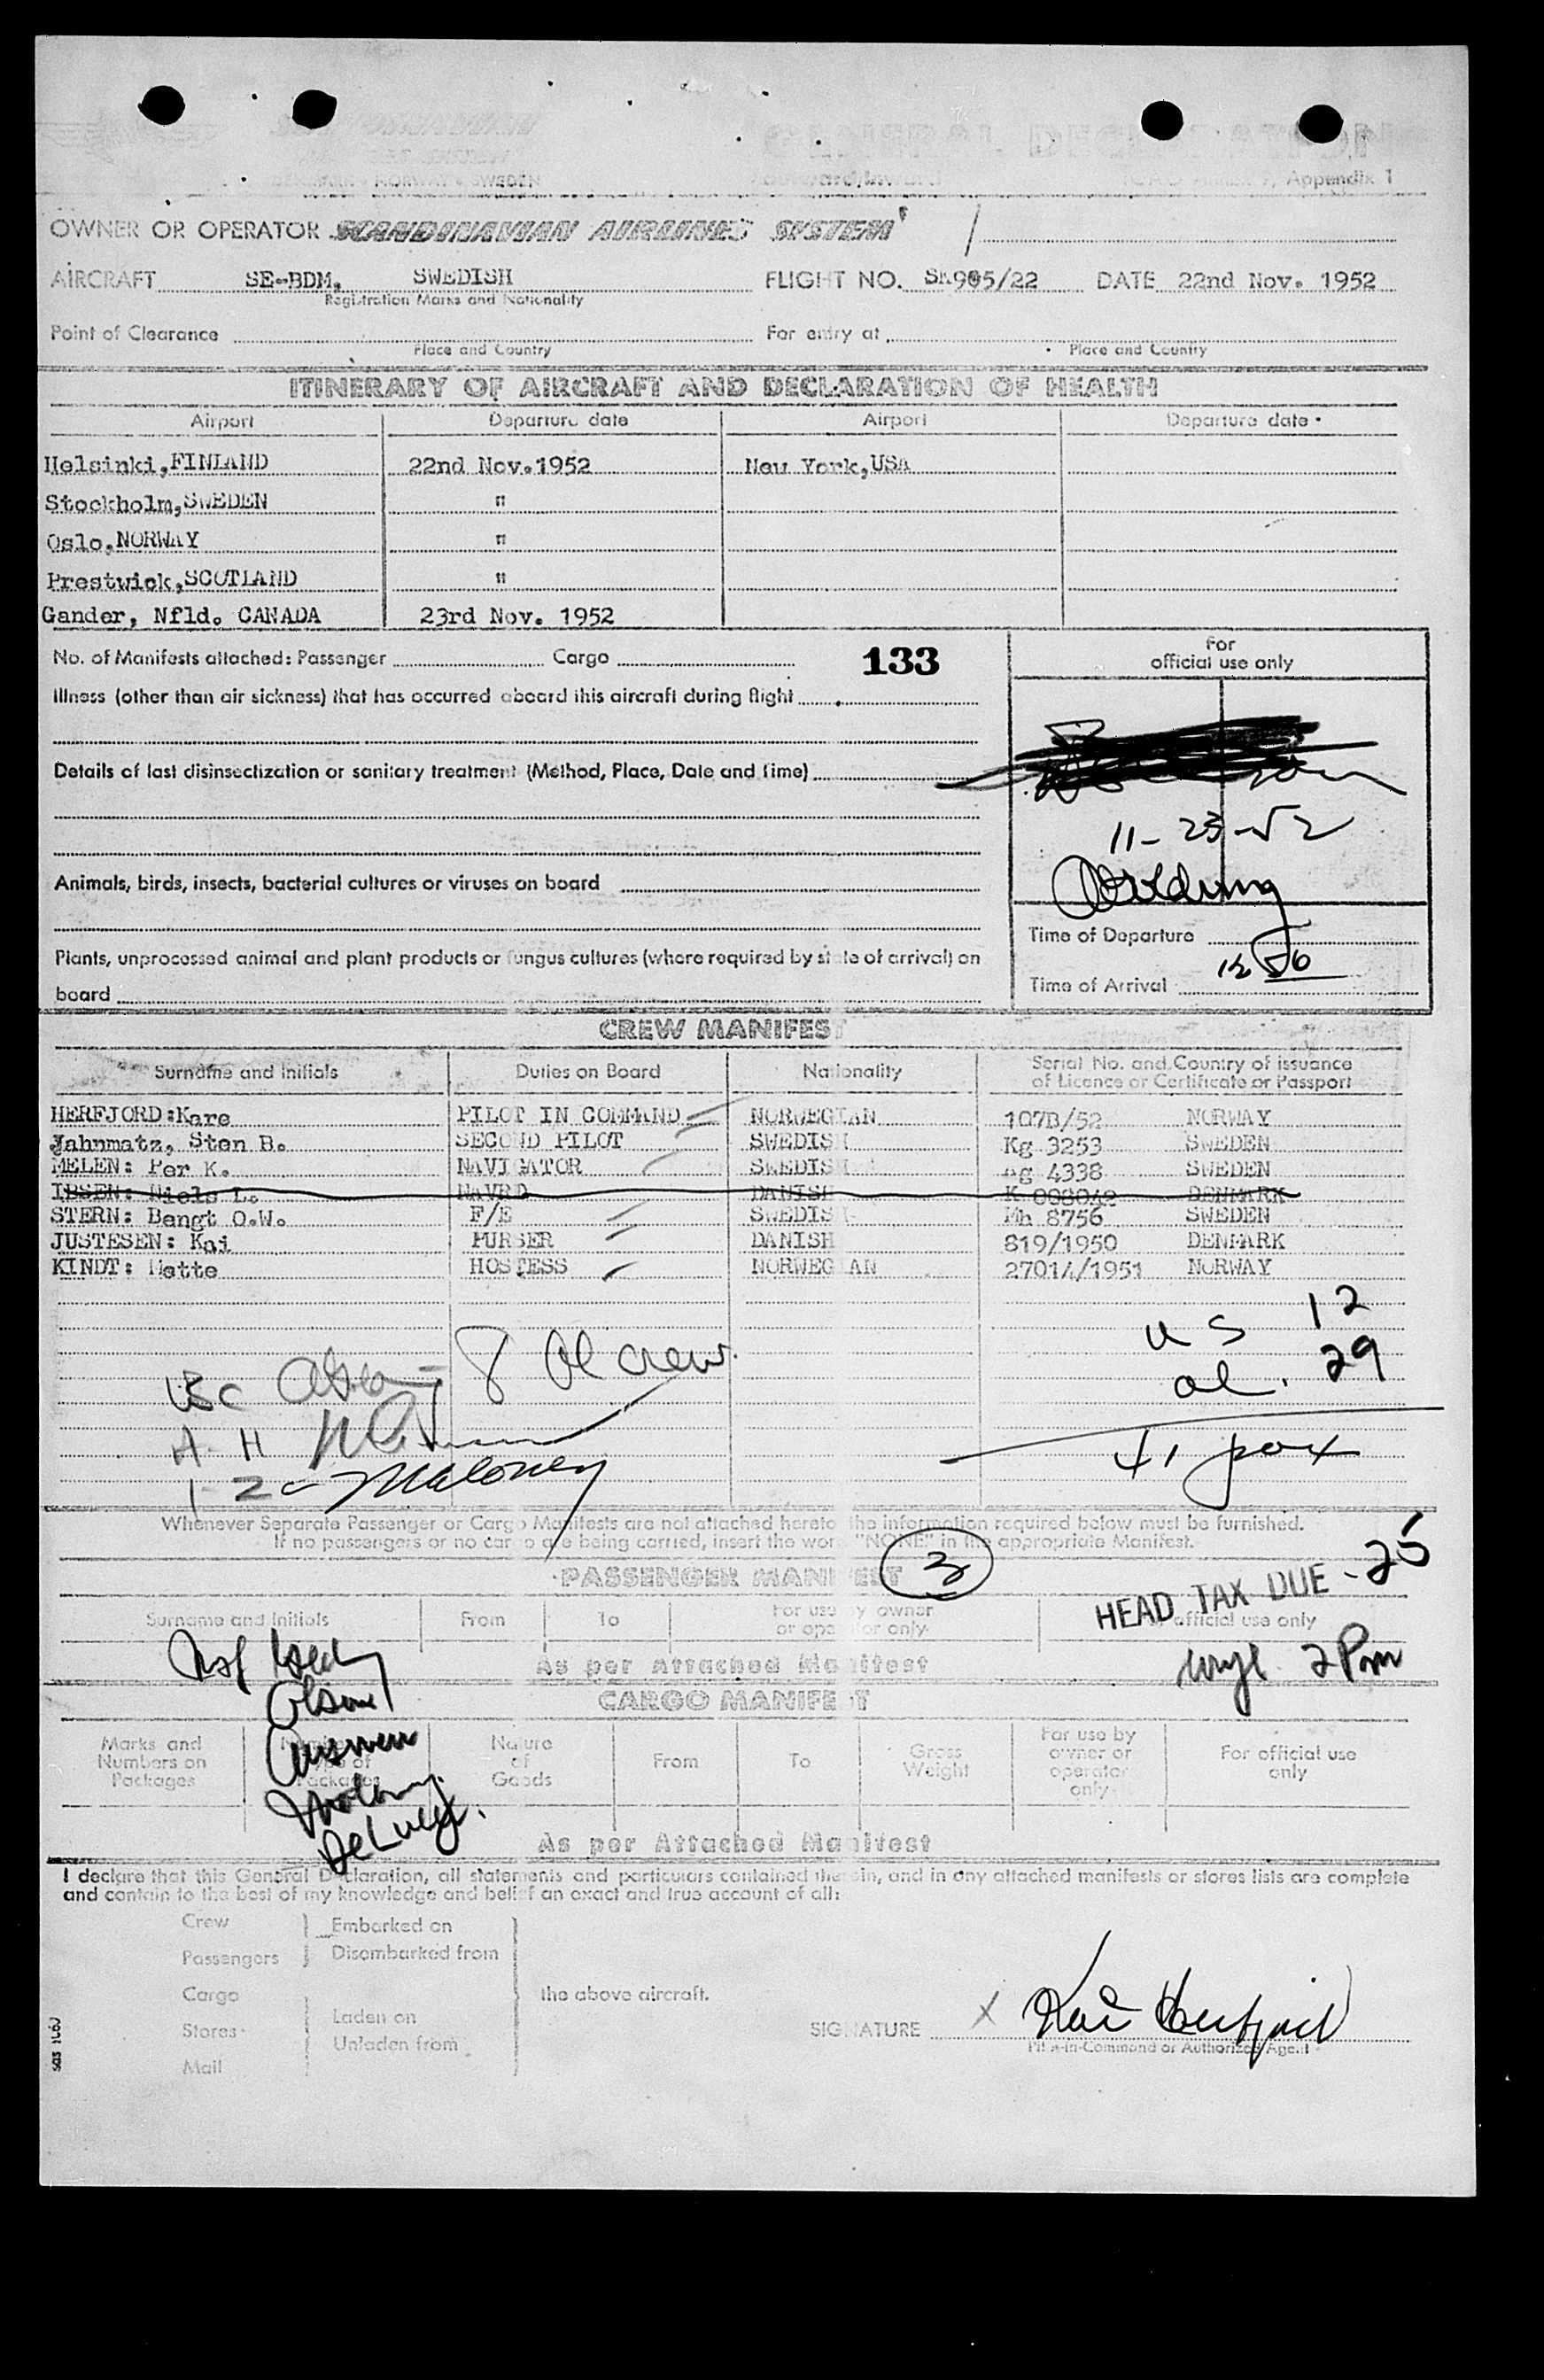 DENMARK NORWAY SWEDEN
Appendix 1
OWNER OR OPERATOR SCANDINAVIAN AIRLINES SYSTEM
AIRCRAFT SE-BDM, SWEDISH FLIGHT NO. SK905/22 DATE 22nd Nov. 1952
Registration Marks and Nationality
Point of Clearance For entry at
Place and Country Place and Country
ITINERARY OF AIRCRAFT AND DECLARATION OF HEALTH
Airport Departure date Airport Departure date
Helsinki,FINLAND 22nd Nov.1952 New York,USA
Stockholm,SWEDEN "
Oslo,NORWAY "
Prestwick,SCOTLAND "
Gander, Nfld. CANADA 23rd Nov. 1952
No. of Manifests attached: Passenger Cargo 133
For
official use only
Illness (other than air sickness) that has occurred aboard this aircraft during flight
Details of last disinsectization or sanitary treatment (Method, Place, Date and time)
11-23-52
Animals, birds, insects, bacterial cultures or viruses on board
Time of Departure
Plants, unprocessed animal and plant products or fungus cultures (where required by state of arrival) on
board
Time of Arrival
CREW MANIFEST
Surname and Initials Duties on Board Nationality Serial No. and Country of issuance
of Licence or Certificate or Passport
HERFJORD:Kare PILOT IN COMMAND NORWEGIAN 107B/52 NORWAY
Jahnmatz, Sten B. SECOND PILOT SWEDISH Kg 3253 SWEDEN
MELEN: Per K. NAVIGATOR SWEDISH 4338 SWEDEN
IBSEN: Niels L. DANISH DENMARK
STERN: Bengt O.W. F/E SWEDISH Mh 8756 SWEDEN
JUSTESEN: Kai PURSER DANISH 819/1950 DENMARK
KINDT: Mette HOSTESS NORWEGIAN 27014/1951 NORWAY
US 12
al. 29
crew
41 pax
Maloney
Whenever Separate Passenger or Cargo Manifests are not attached hereto the information required below must be furnished.
If no passengers or no cargo are being carried, insert the word "NONE" in the appropriate Manifest.
3
PASSENGER MANIFEST
HEAD TAX DUE - 25
Surname and Initials From To For use by owner
or operator only
official use only
2 Pm
As per Attached Manifest
Olson
CARGO MANIFEST
Marks and
Numbers on
Packages
Number
Type of
Packages
Nature
of
Goods
From To Gross
Weight
For use by
owner or
operator
only
For official use
only
As per Attached Manifest
I declare that this General Declaration, all statements and particulars contained therein, and in any attached manifests or stores lists are complete
and contain to the best of my knowledge and belief an exact and true account of all:
Crew Embarked on
Passengers Disembarked from
Cargo the above aircraft.
Stores Laden on
Mail Unladen from
SIGNATURE X Kåre Herfjord
Pilot-in-Command or Authorized Agent